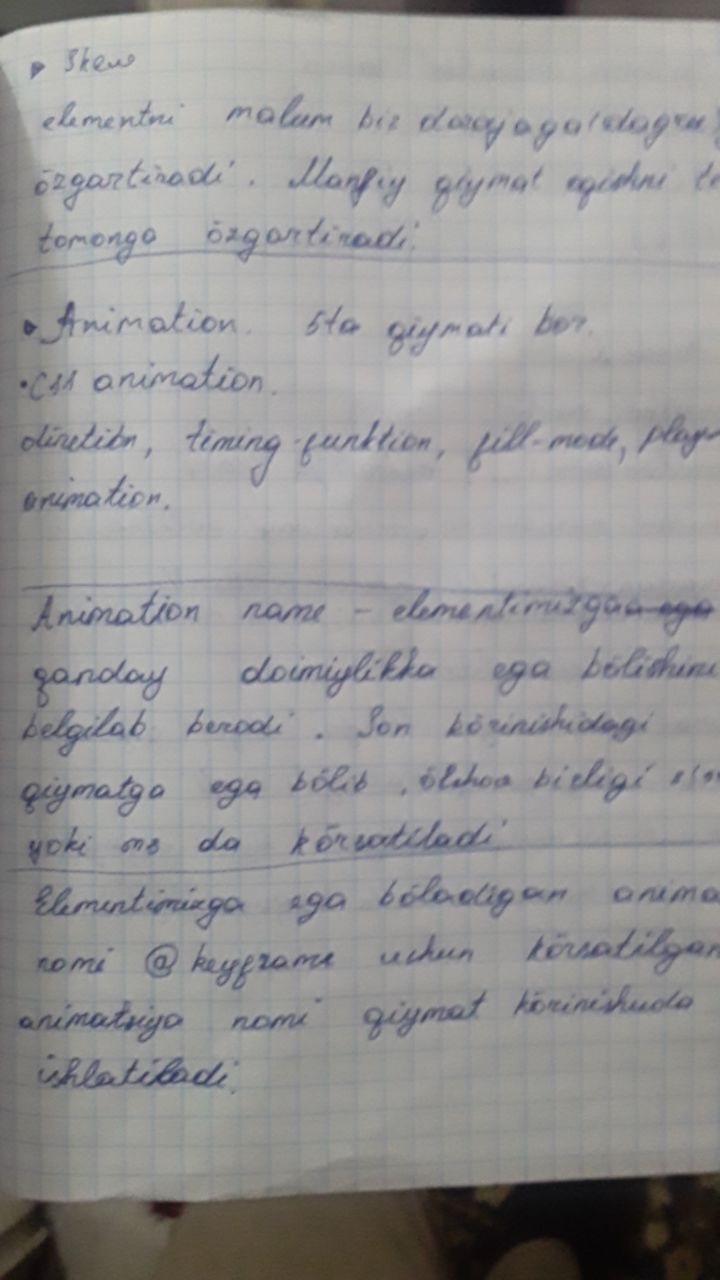 Skew
elementni malum bir darajaga
özgartiradi. Manfiy qiymat egishni
tomonga özgartiradi.
Animation. 5ta qiymati bor.
CSS animation.
diretion, timing-funktion, fill-mode, play
animation.
Animation name - elementimizga
qanday doimiylikka ega bölishini
belgilab beradi. Son körinishidagi
qiymatga ega bölib, ölchov birligi
yoki ms da körsatiladi
Elementimizga ega böladigan anima
nomi @keyframe uchun körsatilgan
animatsiya nomi qiymat körinishuda
ishlatiladi.